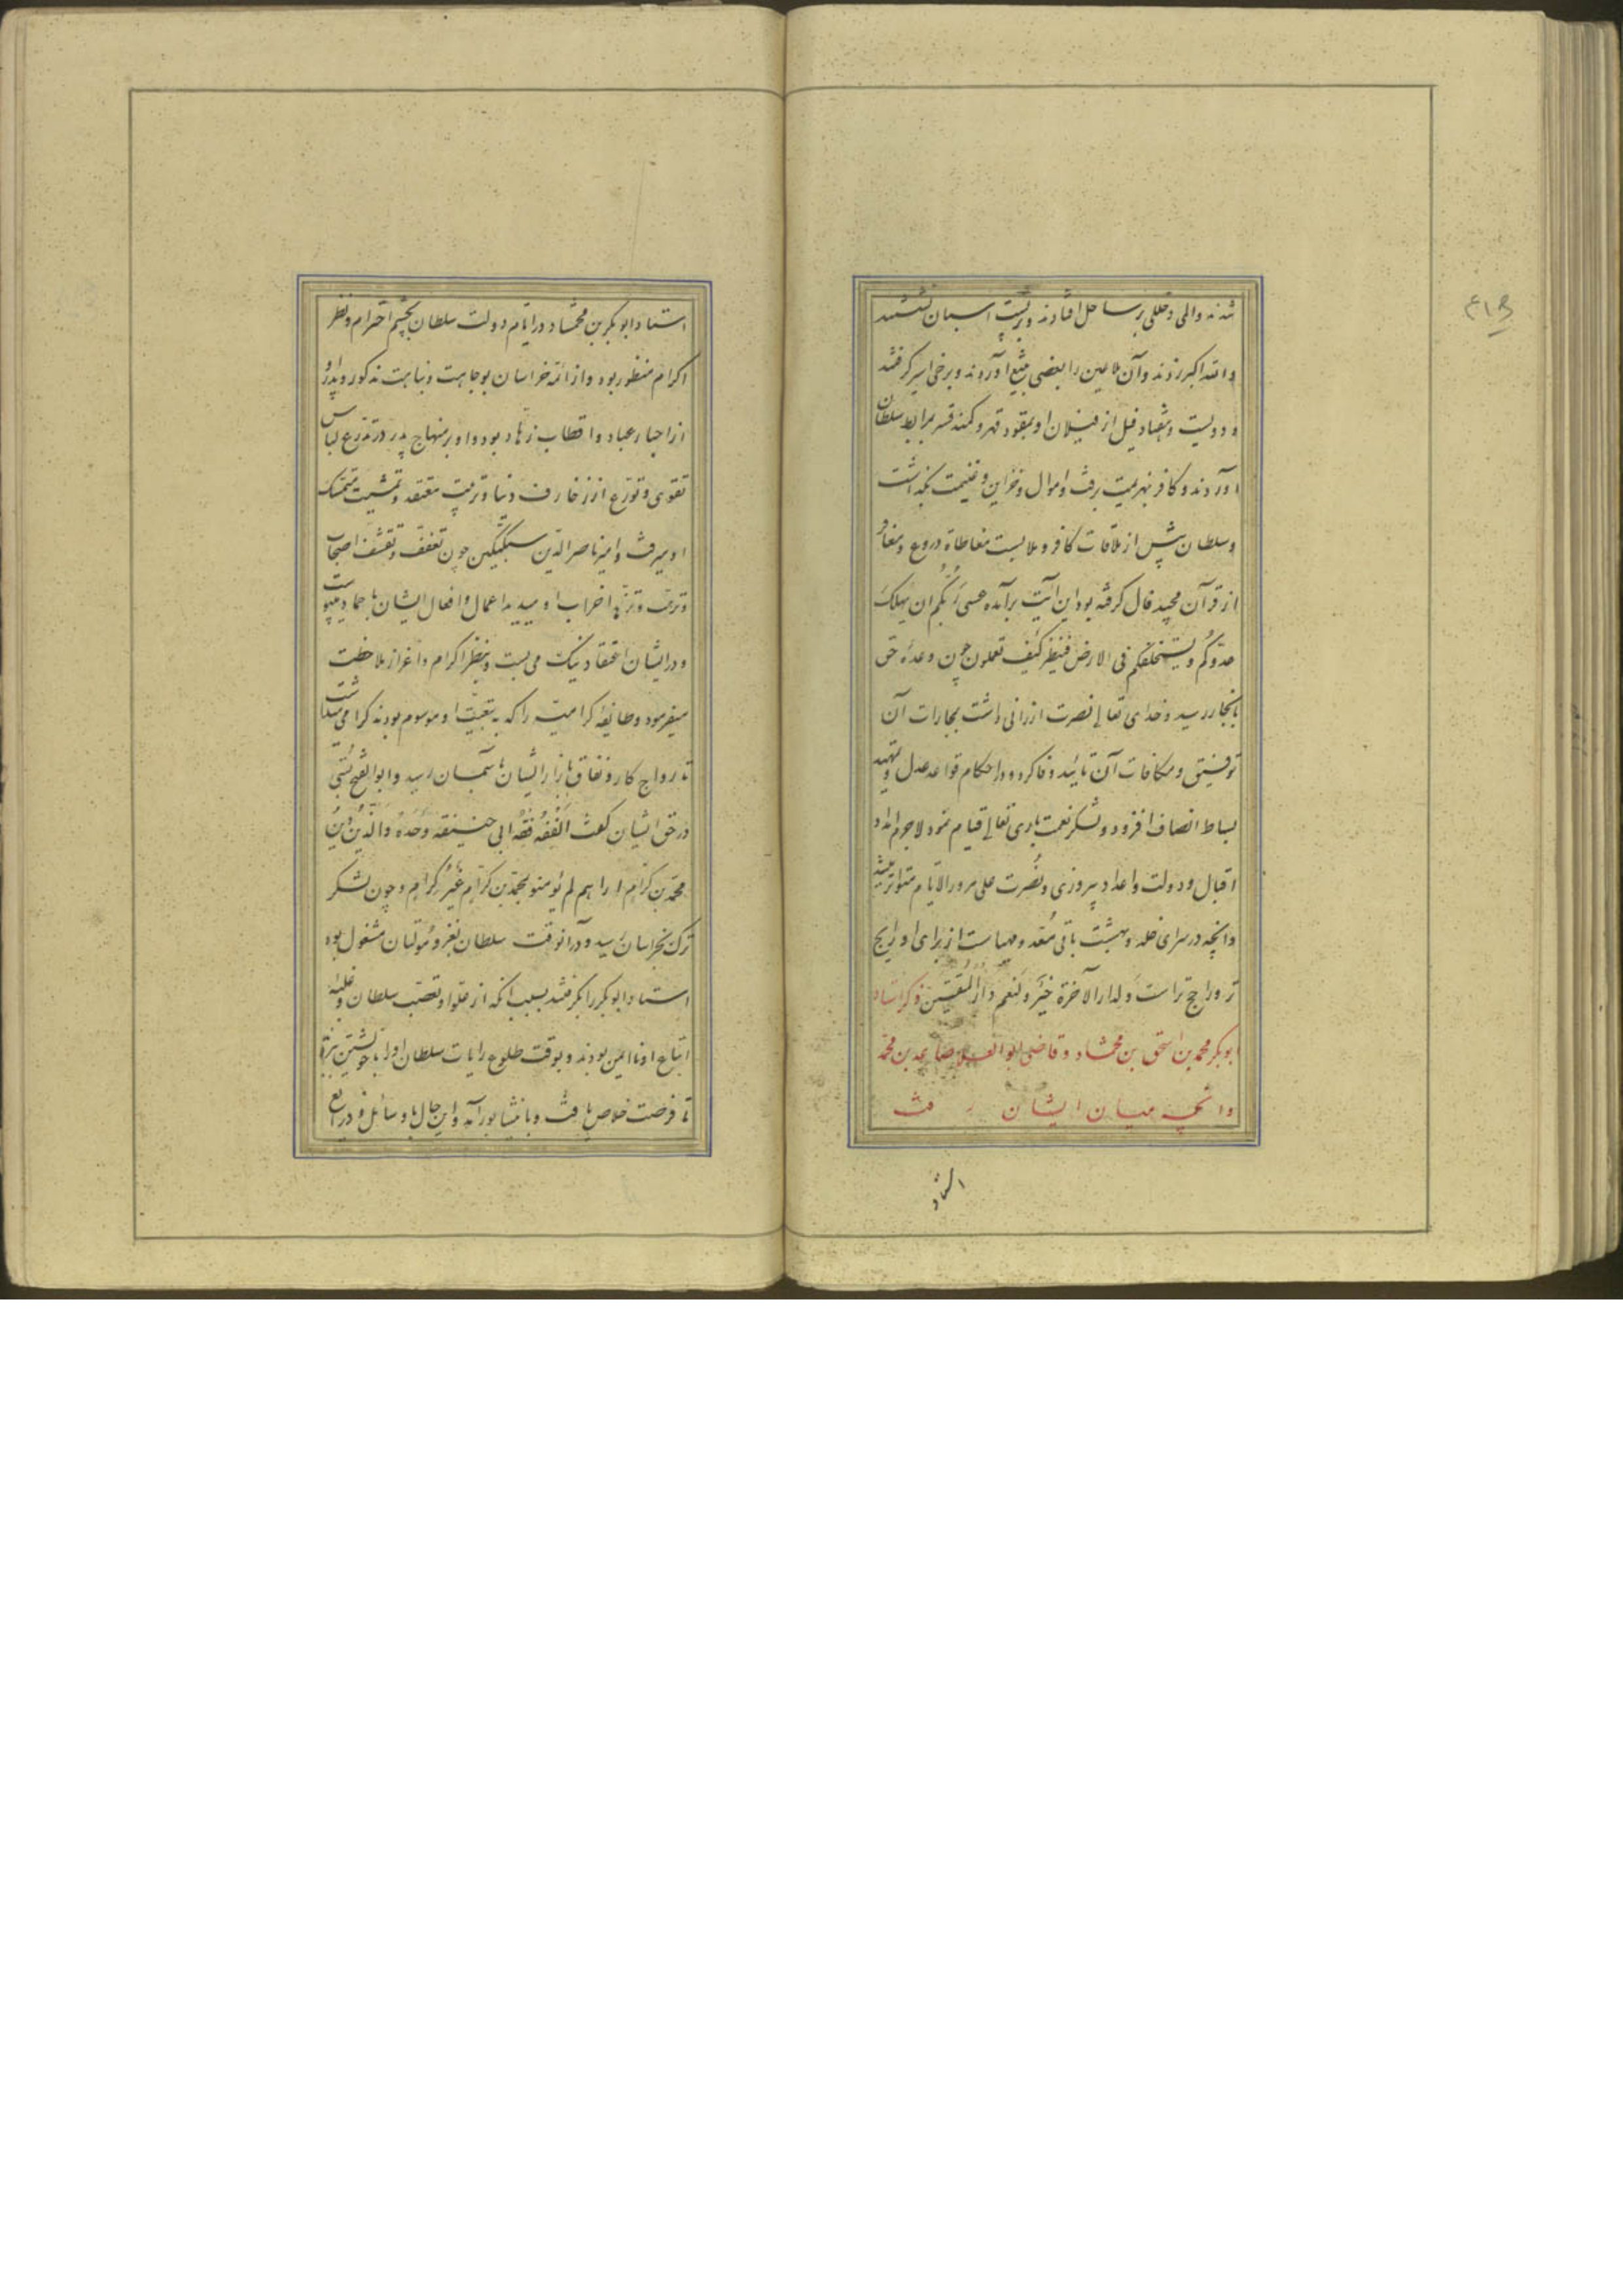 شدند والمی و خللی بر ساحل افتادند و بر پشت اسبان نشستند
و الله اکبر زدند و آن ملاعین را بعضی بتیغ آوردند و برخی اسیر گرفتند
و دویست و هفتاد فیل از فیلان او بمقود قهر و کمند قسر بمرابط سلطان
آوردند و کافر بهزیمت برفت و اموال و خزاین و غنیمت بگذاشت
و سلطان پیش از ملاقات کافر و ملابست معاطاة دروع و مغافر
از قرآن مجید فال گرفته بود این آیت برآمده عسی ربکم ان یهلک
عدوکم و یستخلفکم فی الارض فینظر کیف تعملون چون وعده حق
بانجاز رسید و خدای تعالی نصرت ارزانی داشت بمجارات آن
توفیق و مکافات آن تایید وفا کرد و در احکام قواعد عدل و تمهید
بساط انصاف افزود و بشکر نعمت باری تعالی قیام نمود لاجرم امداد
اقبال و دولت و اعداد پیروزی و نصرت علی مرور الایام متواتر شد
و آنچه در سرای خلد و بهشت باقی معد و مهیاست از برای او رایج
تر و راجح تر است و لدار الآخرة خیر و لنعم دار المتقین ذکر استاد
ابوبکر محمد بن اسحق بن محمشاد و قاضی ابو العلا صاعد بن محمد
و آنچه میان ایشان رفت
استاد
استاد ابوبکر بن محمشاد در ایام دولت سلطان بچشم احترام و نظر
اکرام منظور بود و از ائمه خراسان بوجاهت و نباهت مذکور و پدر او
از احبار عباد و اقطاب زهاد بود و او بر منهاج پدر در تدرع لباس
تقوی و تورع از زخارف دنیا و تربیت معتقد و تمشیت متمسک
او میرفت و امیر ناصر الدین سبکتگین چون تعفف و تقشف اصحاب
و ترهب و تزهد احزاب او میدید اعمال و افعال ایشان باحماد می پیوست
و در ایشان اعتقاد نیک می بست و بنظر اکرام و اعزاز ملاحظت
میفرمود و طایفه کرامیه را که به تبعیت او موسوم بودند گرامی میداشت
تا رواج کار و نفاق بازار ایشان باسمان رسید و ابو الفتح بستی
در حق ایشان گفت الفقه فقه ابی حنیفة وحده والدین دین
محمد بن کرام اراهم لم یؤمنو بمحمد بن کرام غیر کرام و چون لشکر
ترک بخراسان رسید و در آنوقت سلطان بغزو مولتان مشغول بود
استاد ابوبکر را بگرفتند بسبب آنکه از غلو او تعصب سلطان و غلبه
اتباع او ناایمن بودند و بوقت طلوع رایات سلطان او را با خویشتن ببردند
تا فرصت خلاص یافت و با نشابور آمد و این حال با وسائل و ذرایع